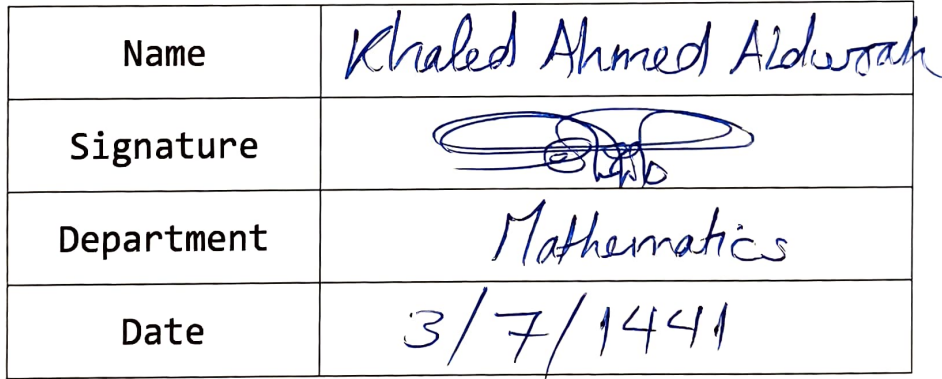 Name Khaled Ahmed
Signature
Department Mathematics
Date 3/7/1441